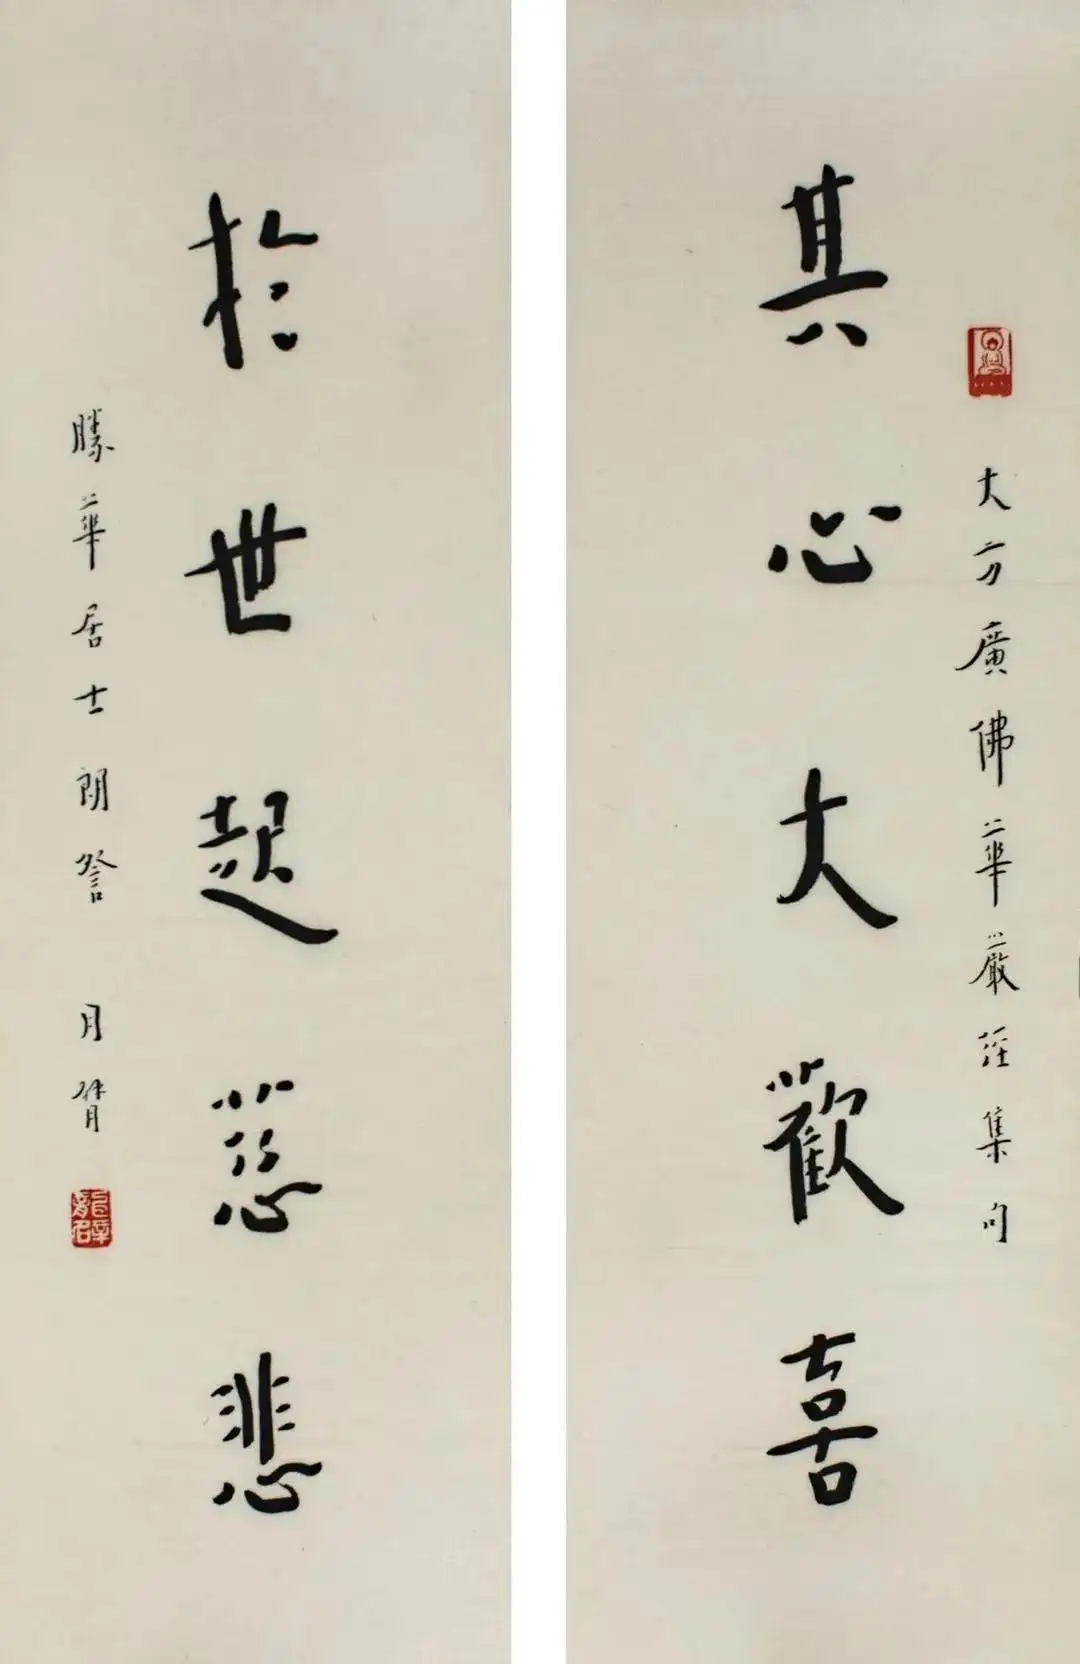 大方廣佛華嚴經集句
其心大歡喜
於世起慈悲
勝華居士朗詧 月臂